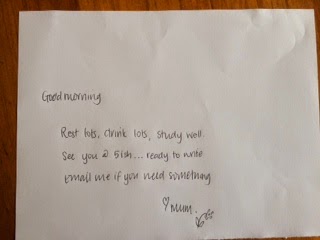 Good morning
Rest lots, drink lots, study well.
See you @ 5ish... ready to write
Email me if you need something
♡ Mum.